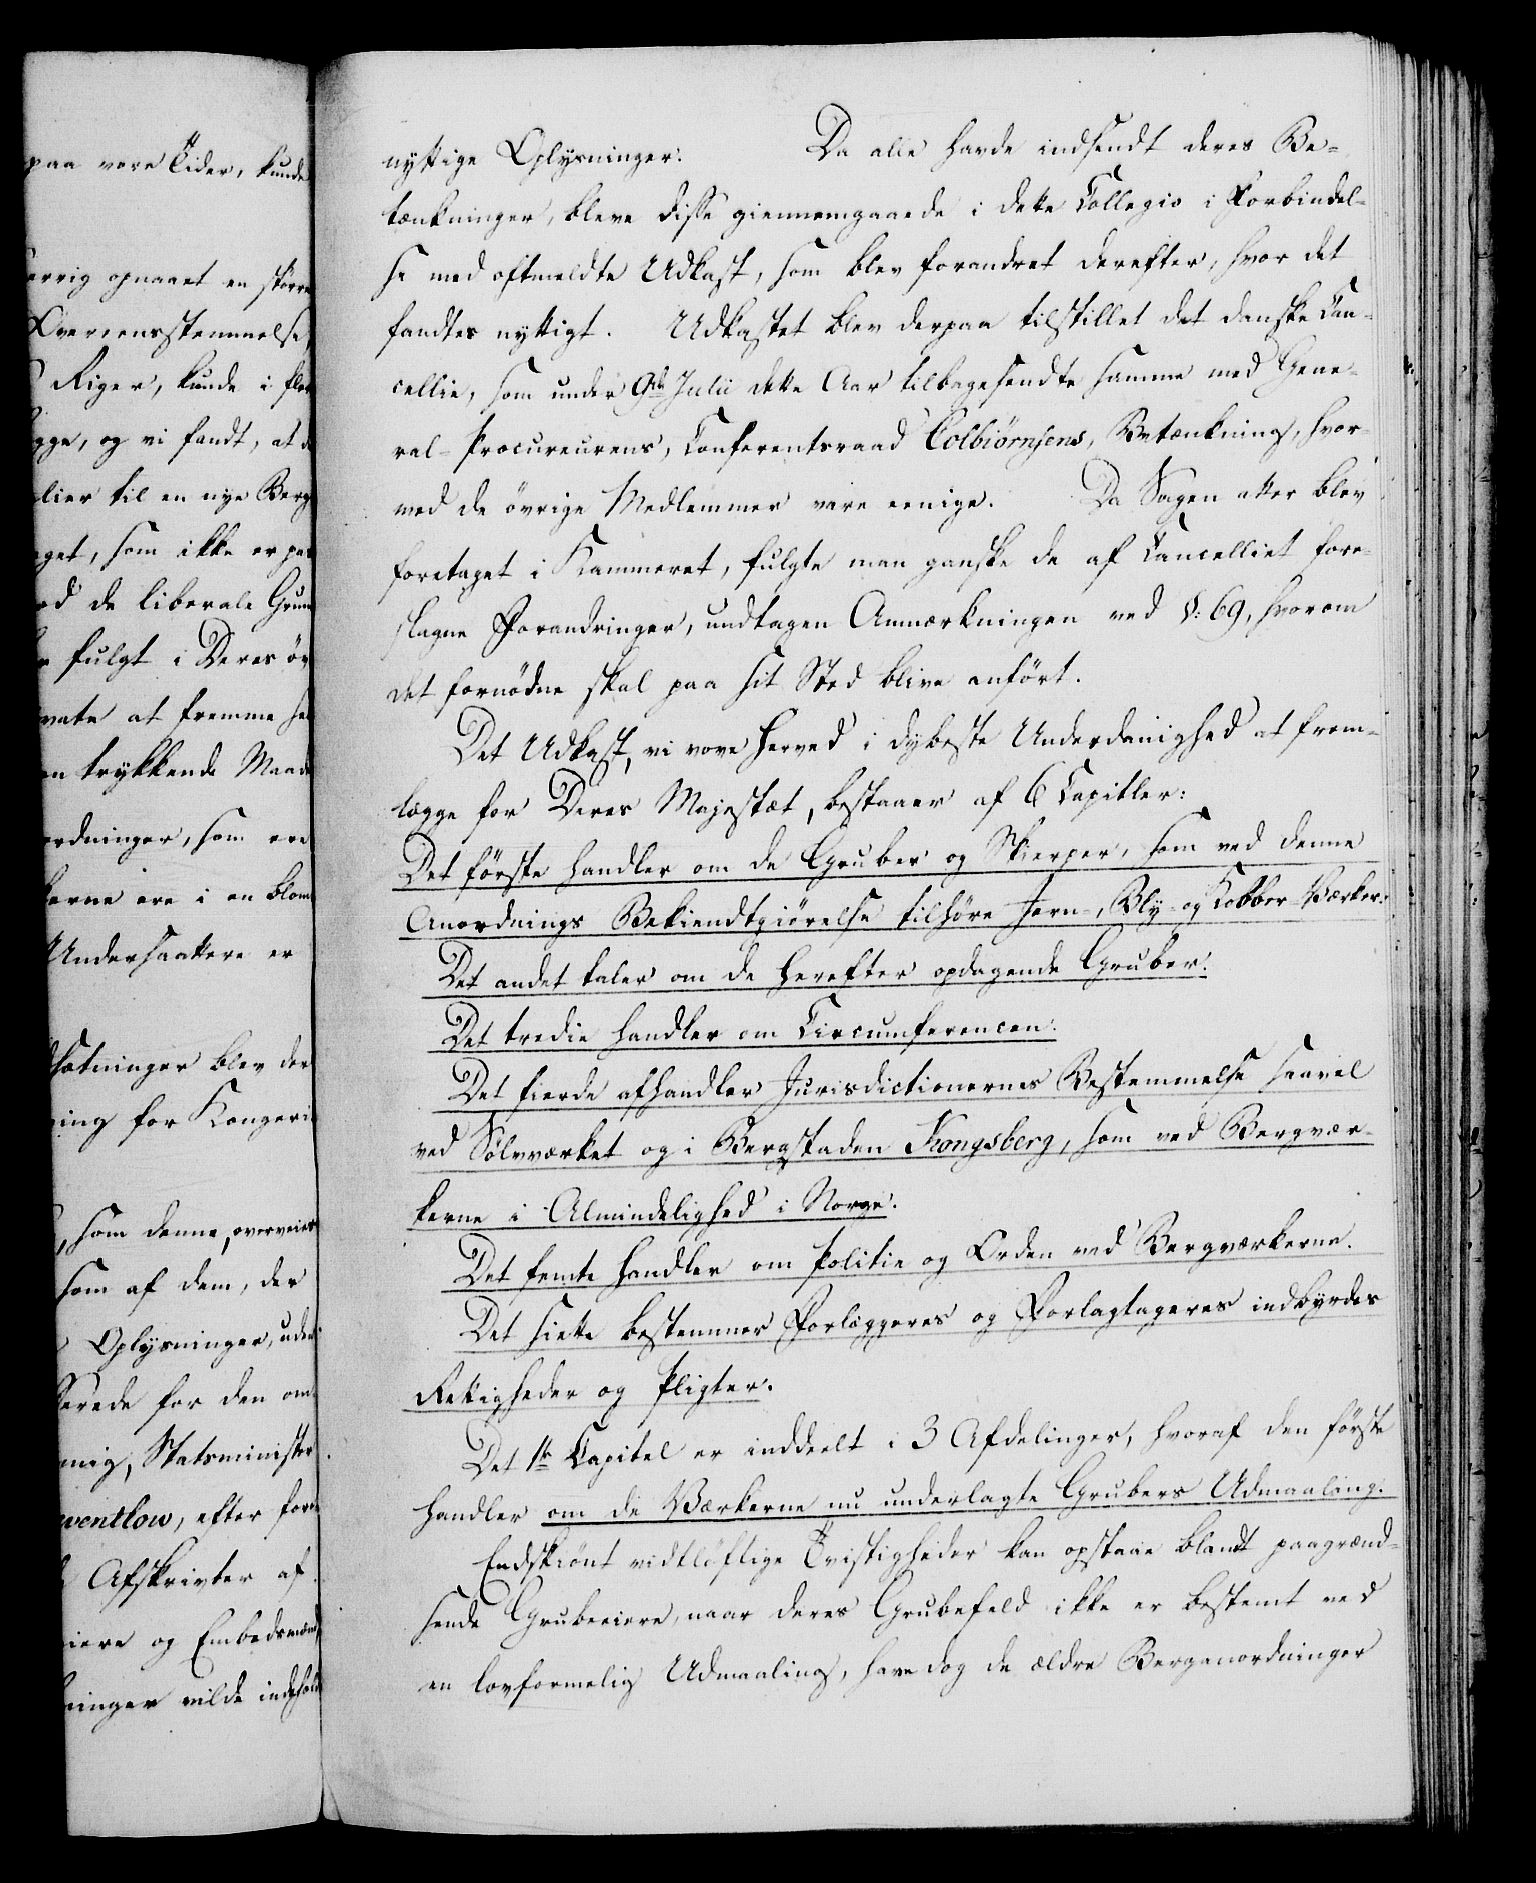 paa vore Tider, kunde
errig opnaaet en större
Overeensstemmelse
Riger, kunde i fle
gge, og vi fandt, at d
lier til en nye Berg
get, som ikke er pas
ed de liberale Grun
fulgt i Deres öv
vate at fremme he
en trykkende Maade
ordninger, som ere
kerne ere i en blom
Undersaattere er
sætninger blev der
ning for Kongeri
, som denne, overveiet
som af dem, der
Oplysninger, uden
erede for den om
mig, Statsminister
ventlow, efter for
Afskrivter af
iere og Embedsmænd,
ninger vilde indehold
nyttige Oplysninger. Da alle havde indsendt deres Be-
tænkninger, bleve disse giennemgaaede i dette Collegio i Forbindel-
se med oftmeldte Udkast, som blev forandret derefter, hvor det
fandtes nyttigt. Udkastet blev derpaa tilstillet det danske Can-
cellie, som under 9de Julii dette Aar tilbagesendte samme med Gene-
ral-Procureurens, Conferentsraad Colbiørnsens, Betænkning, hvor-
med de övrige Medlemmer vare eenige. Da Sagen atter blev
foretaget i Kammeret, fulgte man ganske de af Cancelliet fore-
slagne Forandringer, undtagen Anmærkningen ved §: 69, hvorom
det fornödne skal paa sit Sted blive anfört.
Det Udkast, vi vove herved i dybeste Underdanighed at frem-
lægge for Deres Majestæt, bestaaer af 6 Capitler:
Det förste handler om de Gruber og Skierper, som ved denne
Anordnings Bekiendtgiörelse tilhöre Jern-, Bly- og Kobber-Værker.
Det andet taler om de herefter opdagende Gruber.
Det tredie handler om Circumferencen.
Det fierde afhandler Jurisdictionernes Bestemmelse saavel
ved Sölvværket og i Bergstaden Kongsberg, som ved Bergvær-
kerne i Almindelighed i Norge.
Det femte handler om Politie og Orden ved Bergværkerne.
Det siette bestemmer Forlæggeres og Forlagtageres indbyrdes
Rettigheder og Pligter.
Det 1te Capitel er inddeelt i 3 Afdelinger, hvoraf den förste
handler om de Værkerne nu underlagte Grubers Udmaaling.
Endskiönt vidtlöftige Tvistigheder kan opstaae blandt paagrænd-
sende Grubeeiere, naar deres Grubefeld ikke er bestemt ved
en lovformelig Udmaaling, have dog de ældre Berganordninger